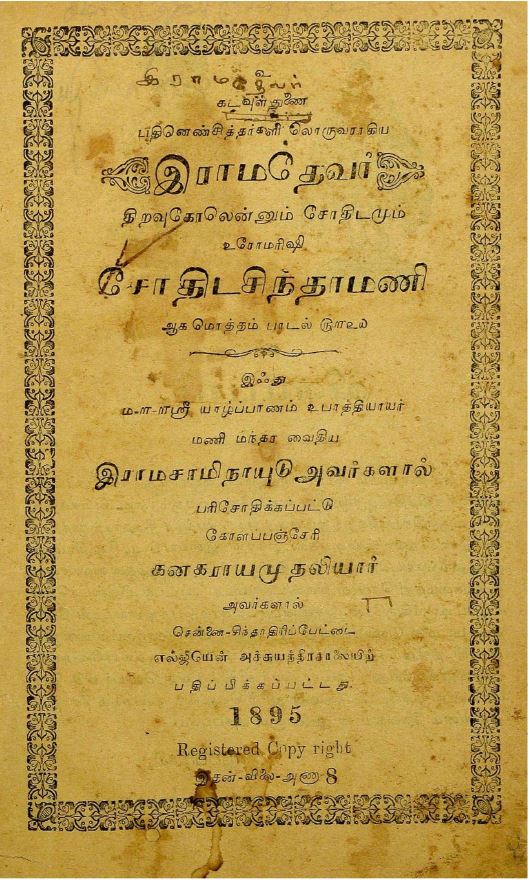 இராமதேவர்
உ
கடவுள்துணை
பதினெண்சித்தர்களி லொருவராகிய
இராமதேவர்
திறவுகோலென்னும் சோதிடமும்
உரோமரிஷி
சோதிடசிந்தாமணி
ஆகமொத்தம் பாடல்
இஃது
ம-ள-ள-ஸ்ரீ யாழ்ப்பாணம் உபாத்தியாயர்
மணி மந்தர வைதிய
இராமசாமிநாயுடு அவர்களால்
பரிசோதிக்கப்பட்டு
கோளப்பஞ்சேரி
கனகராயமுதலியார்
அவர்களால்
சென்னை-சிந்தாதிரிப்பேட்டை
எல்ஜீயென் அச்சுயந்திரசாலையிற்
பதிப்பிக்கப்பட்டது.
1895
Registered Copy right
இதன்-விலை-அணா 8